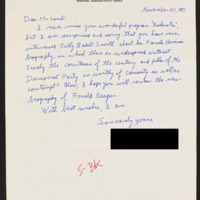 November 20, 199
Dear Mr. Lamb:
I never miss your wonderful program Booknotes,
but I am surprised and sorry that you have now
interviewed Sally Bedell Smith about the Pamela Harriman
biography, in which there is widespread interest.
Surely the courtesan of the century and of the
Democrat Party is worthy of curiosity as well as
contempt! Also, I hope you will review the new
biography of Ronald Reagan.
With best wishes, I am
Sincerely yours
S-BK